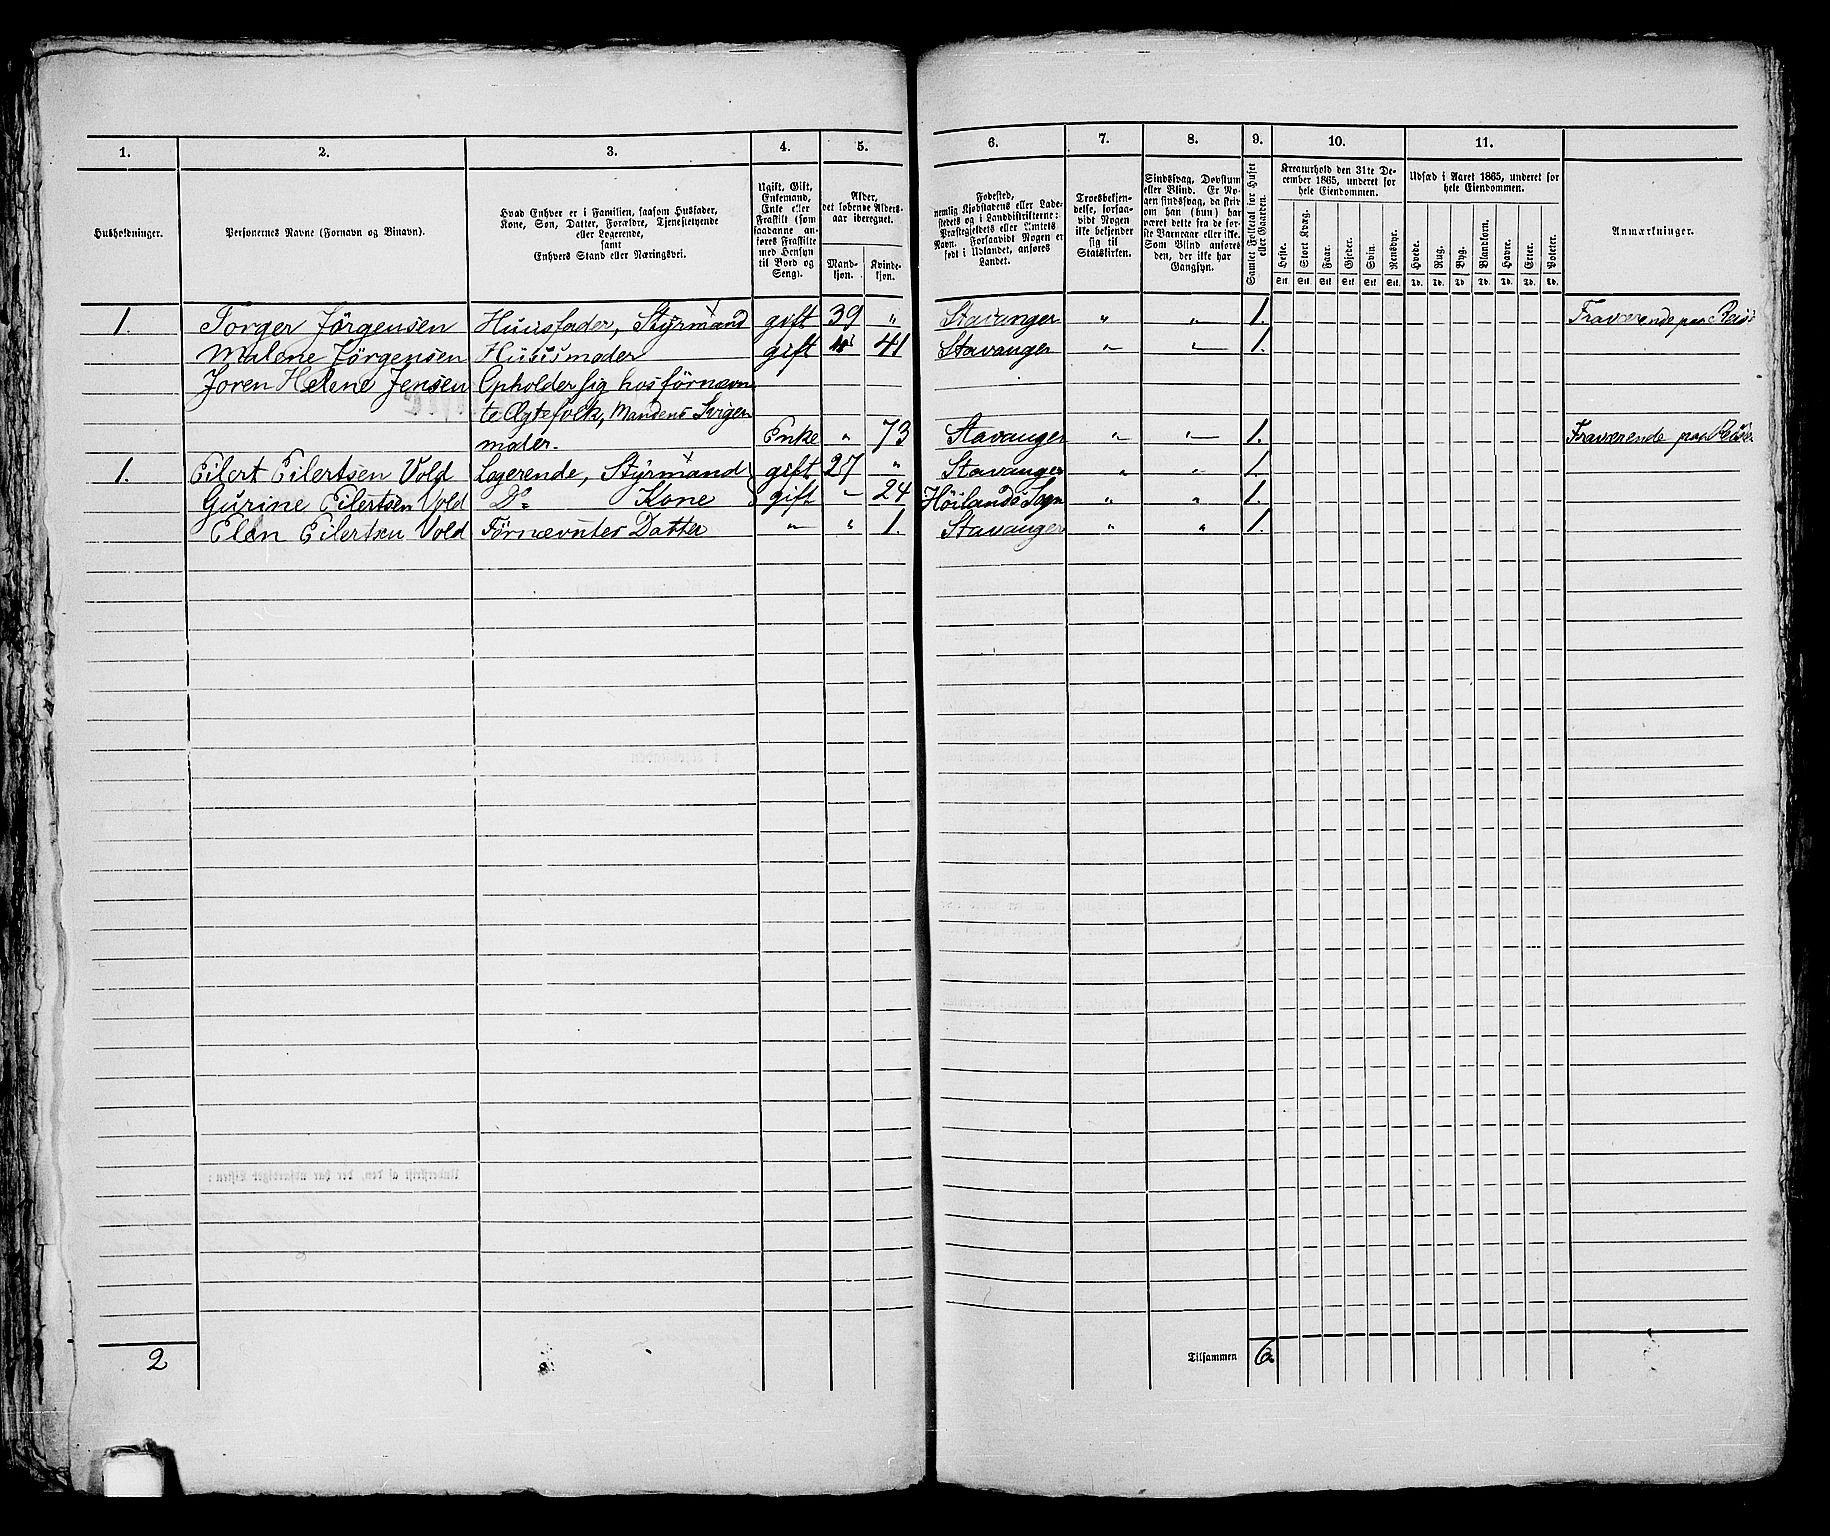 1. 2. 3. 4. 5. 6. 7. 8. 9. 10. 11.
Husholdninger.
Personernes Navne (Fornavn og Binavn).
Hvad Enhver er i Familien, saasom Husfader,
Kone, Søn, Datter, Forældre, Tjenestetyende
eller Logerende,
samt
Enhvers Stand eller Næringsvei.
Ugift, Gift,
Enkemand,
Enke eller
Fraskilt (som
saadanne an-
føres Fraskilte
med Hensyn
til Bord og
Seng).
Alder,
det løbende Alders-
aar iberegnet.
Mand-
kjøn.
Kvinde-
kjøn.
Fødested,
nemlig Kjøbstadens eller Lade-
stedets og i Landdistrikterne:
Præstegjeldets eller Amtets
Navn. Forsaavidt Nogen er
født i Udlandet, anføres
Landet.
Troesbekjen-
delse, forsaa-
vidt Nogen
ikke bekjender
sig til
Statskirken.
Sindssvag, Døvstum
eller Blind. Er No-
gen sindssvag, da skriv
om han (hun) har
været dette fra de før-
ste Barnaar eller ikke.
Som Blind anføres
den, der ikke har
Gangsyn.
Samlet Folketal for Huset
eller Gaarden.
Kreaturhold den 31te De-
cember 1865, underet for
hele Eiendommen.
Heste. Stort Kvæg. Faar. Gjeder. Svin. Rensdyr.
Stk. Stk. Stk. Stk. Stk. Stk.
Udsæd i Aaret 1865, underet for
hele Eiendommen.
Hvede. Rug. Byg. Blandkorn. Havre. Erter. Poteter.
Td. Td. Td. Td. Td. Td. Td.
Anmærkninger.
1. Torger Jørgensen Huusfader, Styrmand gift 39 " Stavanger " " 1. Fraværende paa Reise
Malene Jørgensen Huusmoder gift 41 Stavanger " " 1.
Joren Helene Jensen Opholder sig hos førnævn
te Ægtefolk, Mandens Sviger
moder. Enke " 73 Stavanger " " 1.
Fraværende paa Reise
1. Eilert Eilertsen Vold Logerende, Styrmand gift 27 " Stavanger " " 1.
Gurine Eilertsen Vold Do Kone gift " 24 Høilands Sogn " " 1.
Elen Eilertsen Vold Førnævntes Datter " " 1. Stavanger " " 1.
2 Tilsammen 6